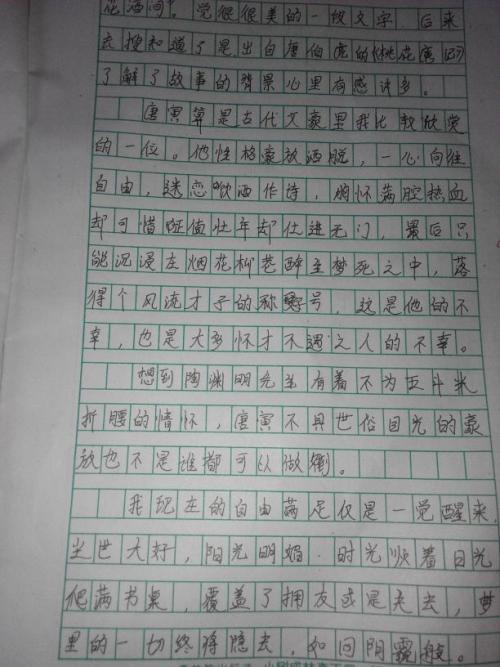 花酒间?。觉很很美的一段文字,后来
去搜知道了是出自唐伯虎的《桃花庵记》
了解了故事的背景心里有感许多。
唐寅算是古代文豪里我比较欣赏
的一位。他性格豪放洒脱,一心向往
自由,迷恋饮酒作诗,胸怀满腔热血
却可惜正值壮年却仕进无门,最后只
能沉浸在烟花柳巷醉生梦死之中,落
得个风流才子的称号,这是他的不
幸,也是大多怀才不遇之人的不幸。
想到陶渊明先生有着不为五斗米
折腰的情怀,唐寅不具世俗目光的豪
放也不是谁都可以做到。
我现在的自由满足仅是一觉醒来
尘世大好,阳光明媚.时光顺着日光
爬满书桌,覆盖了拥有或是失去,梦
里的一切终将隐去,如同阴霾般。